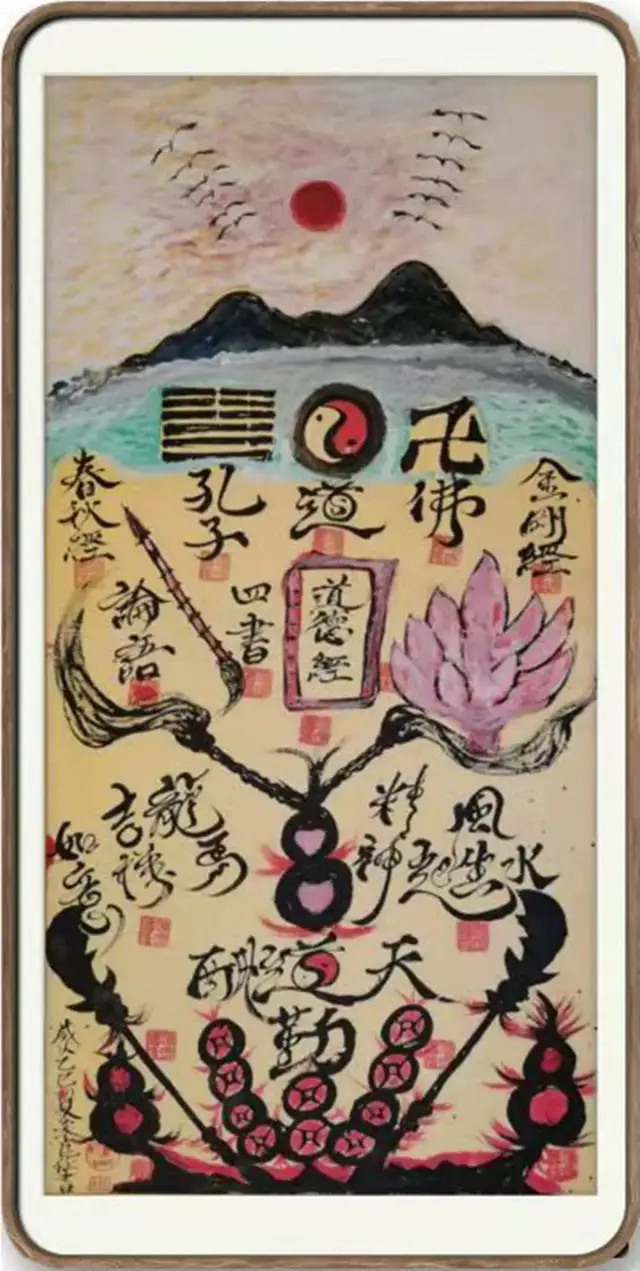 春秋經
孔子
道
佛
金剛經
論語
四書
道德經
吉祥
如意
龍馬
精神
風生
水起
天道酬
勤
歲乙巳